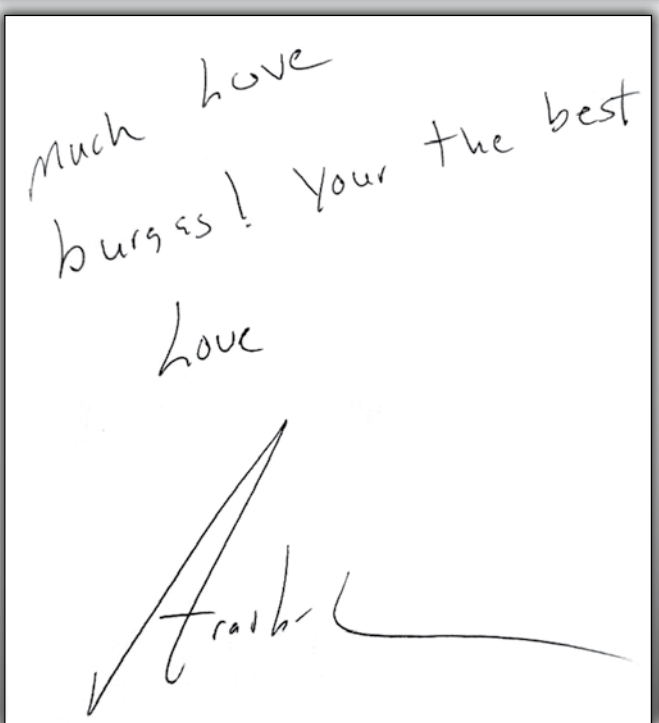 Much Love
burges! Your the best
Love
Arash L